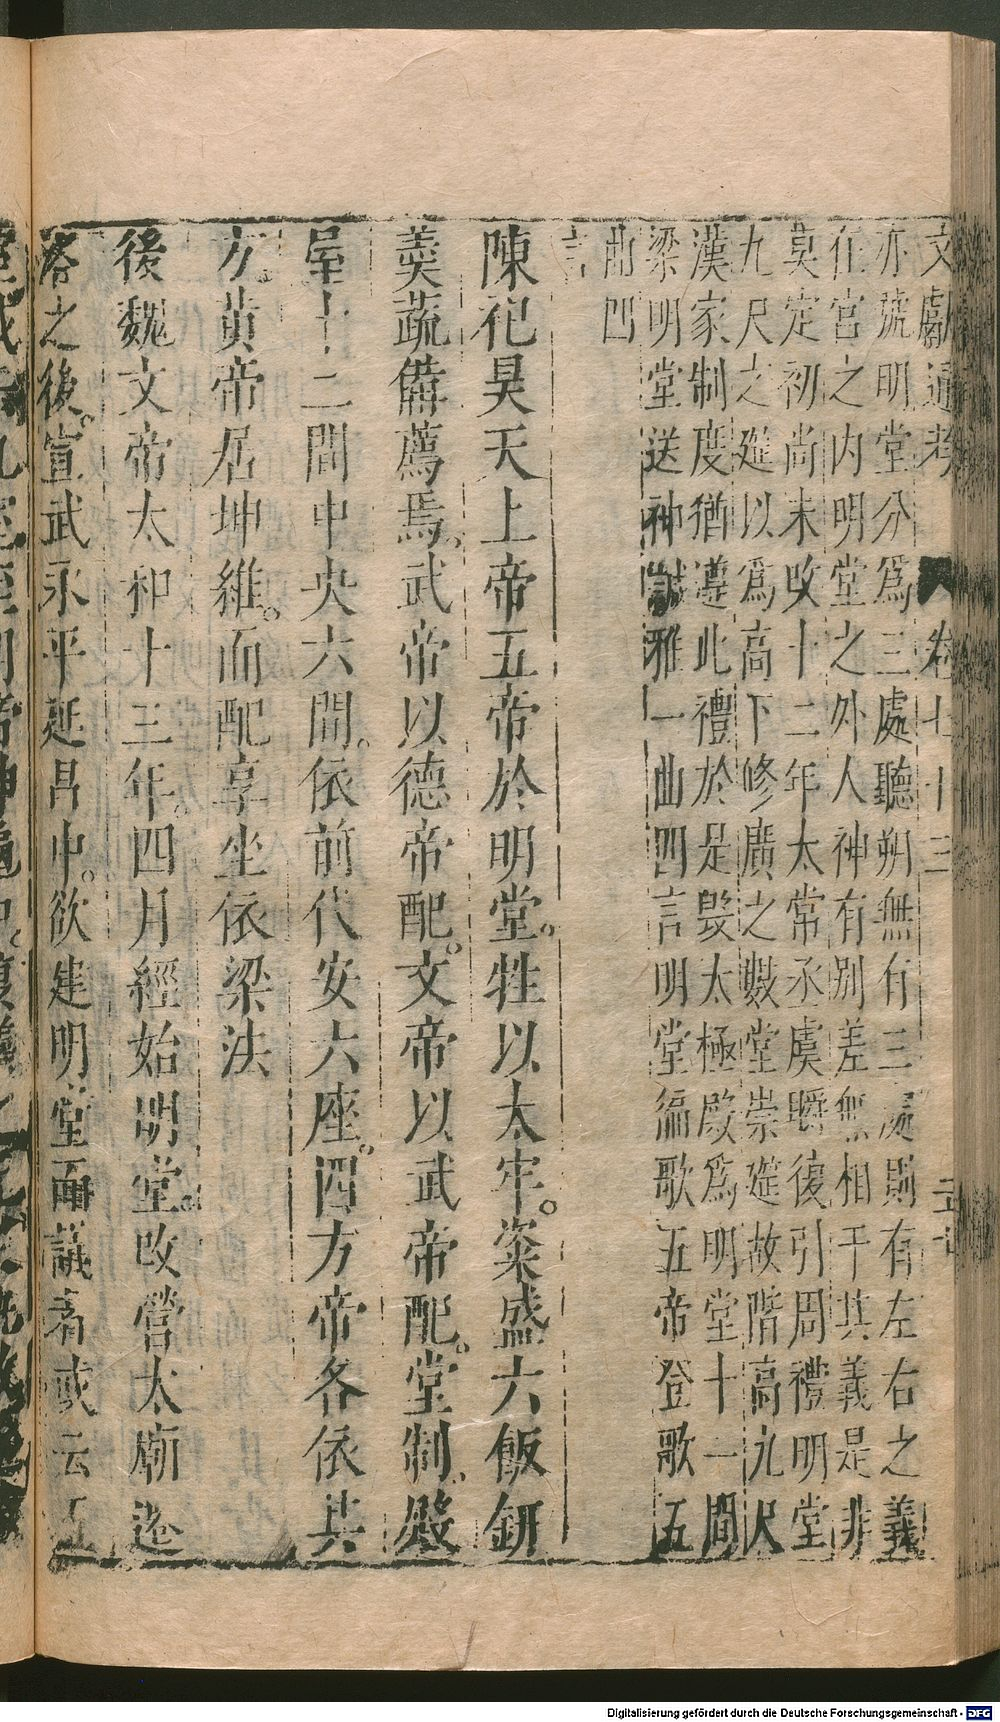 文獻通考 卷七十三
亦號明堂分爲三處聽朔無有三處則有左右之義
在宮之内明堂之外人神有别差無相干其義是非
莫定初尚未改十二年太常丞虞㬭後引周禮明堂
九尺之筵以爲高下修廣之數堂崇筵故階高九尺
漢家制度猶遵此禮於是毁太極殿爲明堂十一間
梁明堂送神誠雅一曲四言明堂徧歌五帝登歌五
曲四
言
陳祀昊天上帝五帝於明堂。牲以太牢。粢盛六飯鈃
羹蔬備薦焉。武帝以德帝配。文帝以武帝配。堂制、殿
屋十二間中央六間。依前代安六座。四方帝各依其
方黃帝居坤維。而配享坐依梁法
後魏文帝太和十三年。四月經始明堂。改營太廟遷
洛之後。宣武永平延昌中。欲建明堂而議者或云五
Digitalisierung gefördert durch die Deutsche Forschungsgemeinschaft - DFG